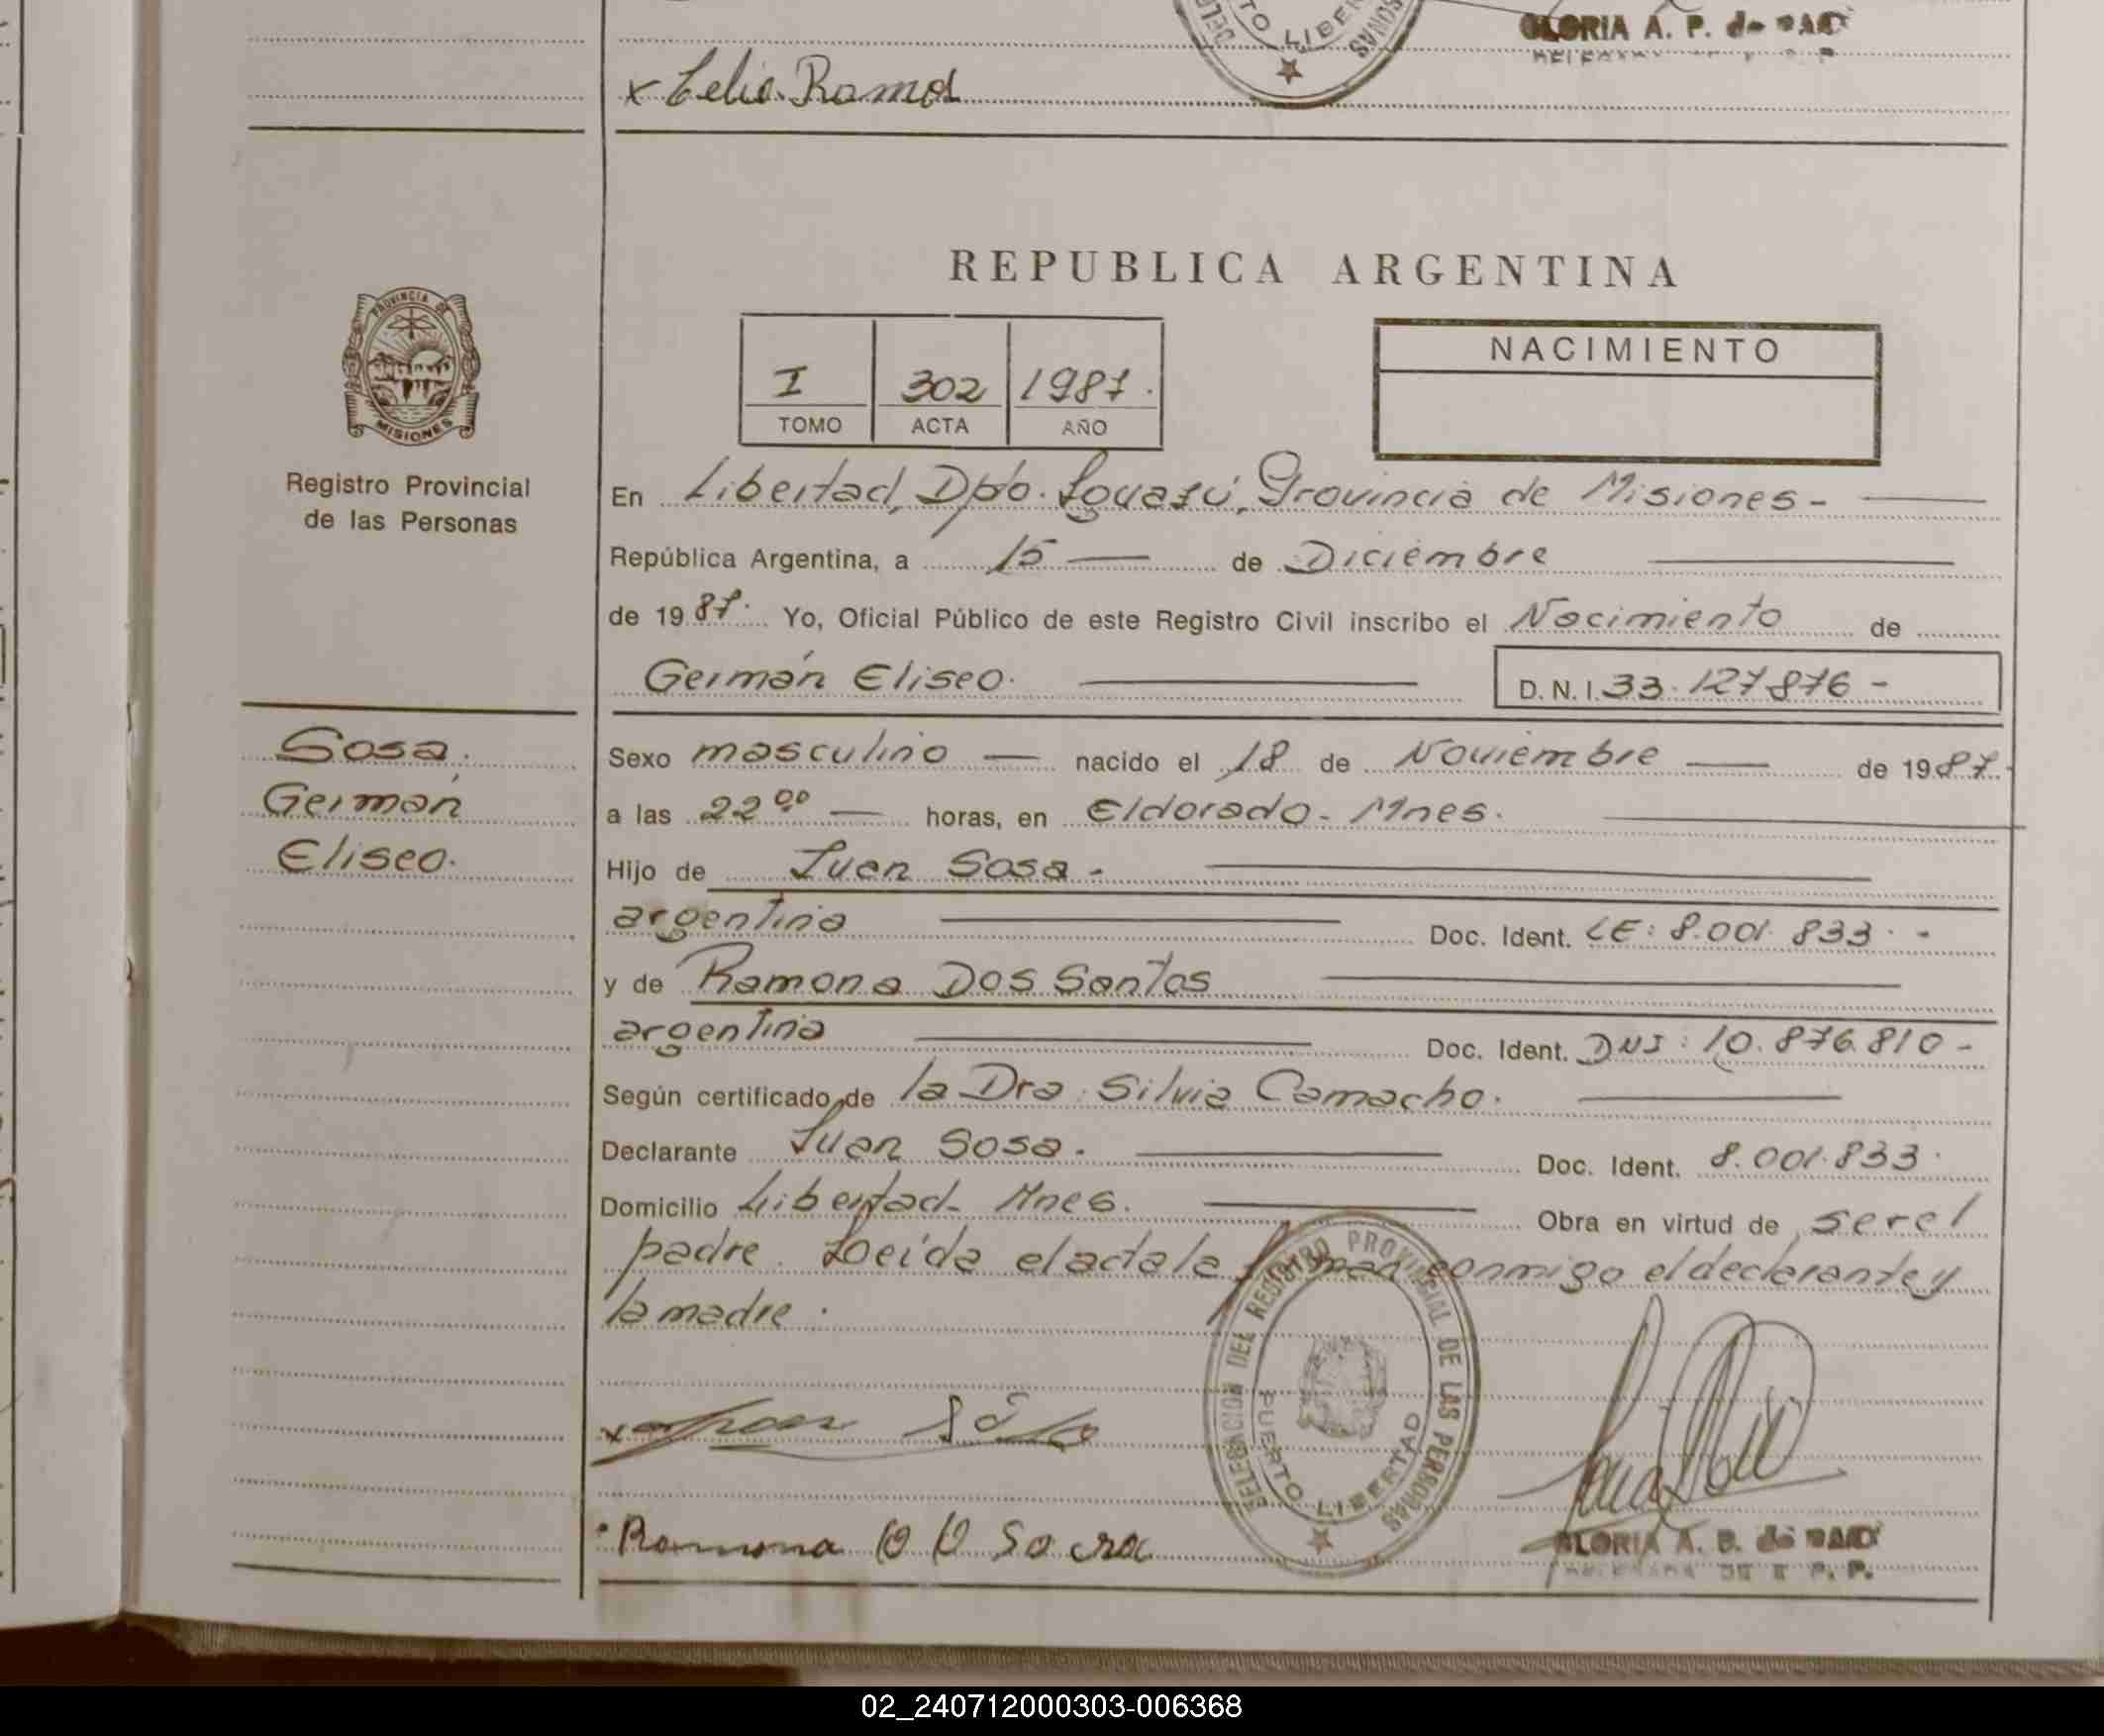 GLORIA A. P. de
x Celia Ramos
REPUBLICA ARGENTINA
PROVINCIA DE
MISIONES
Registro Provincial
de las Personas
I 302 1987.
TOMO ACTA AÑO
NACIMIENTO
En Libertad, Dpto. Iguazú, Provincia de Misiones -
República Argentina, a 15 de Diciembre
de 1987. Yo, Oficial Público de este Registro Civil inscribo el Nacimiento de
Germán Eliseo. D. N. I. 33.127876 -
Sosa,
Germán
Eliseo.
Sexo masculino nacido el 18 de Noviembre de 1987.
a las 22 00 horas, en Eldorado - Mnes.
Hijo de Juan Sosa -
argentina Doc. Ident. LE: 8.001.833. -
y de Ramona Dos Santos
argentina Doc. Ident. DNI: 10.876.810 -
Según certificado de la Dra. Silvia Camacho.
Declarante Juan Sosa. Doc. Ident. 8.001.833.
Domicilio Libertad - Mnes. Obra en virtud de ser el
padre. Leída el acta la firman conmigo el declarante y
la madre.
DELEGACION DEL REGISTRO PROVINCIAL DE LAS PERSONAS
PUERTO LIBERTAD
x Juan Sosa
Ramona
GLORIA A. P. de
02_240712000303-006368